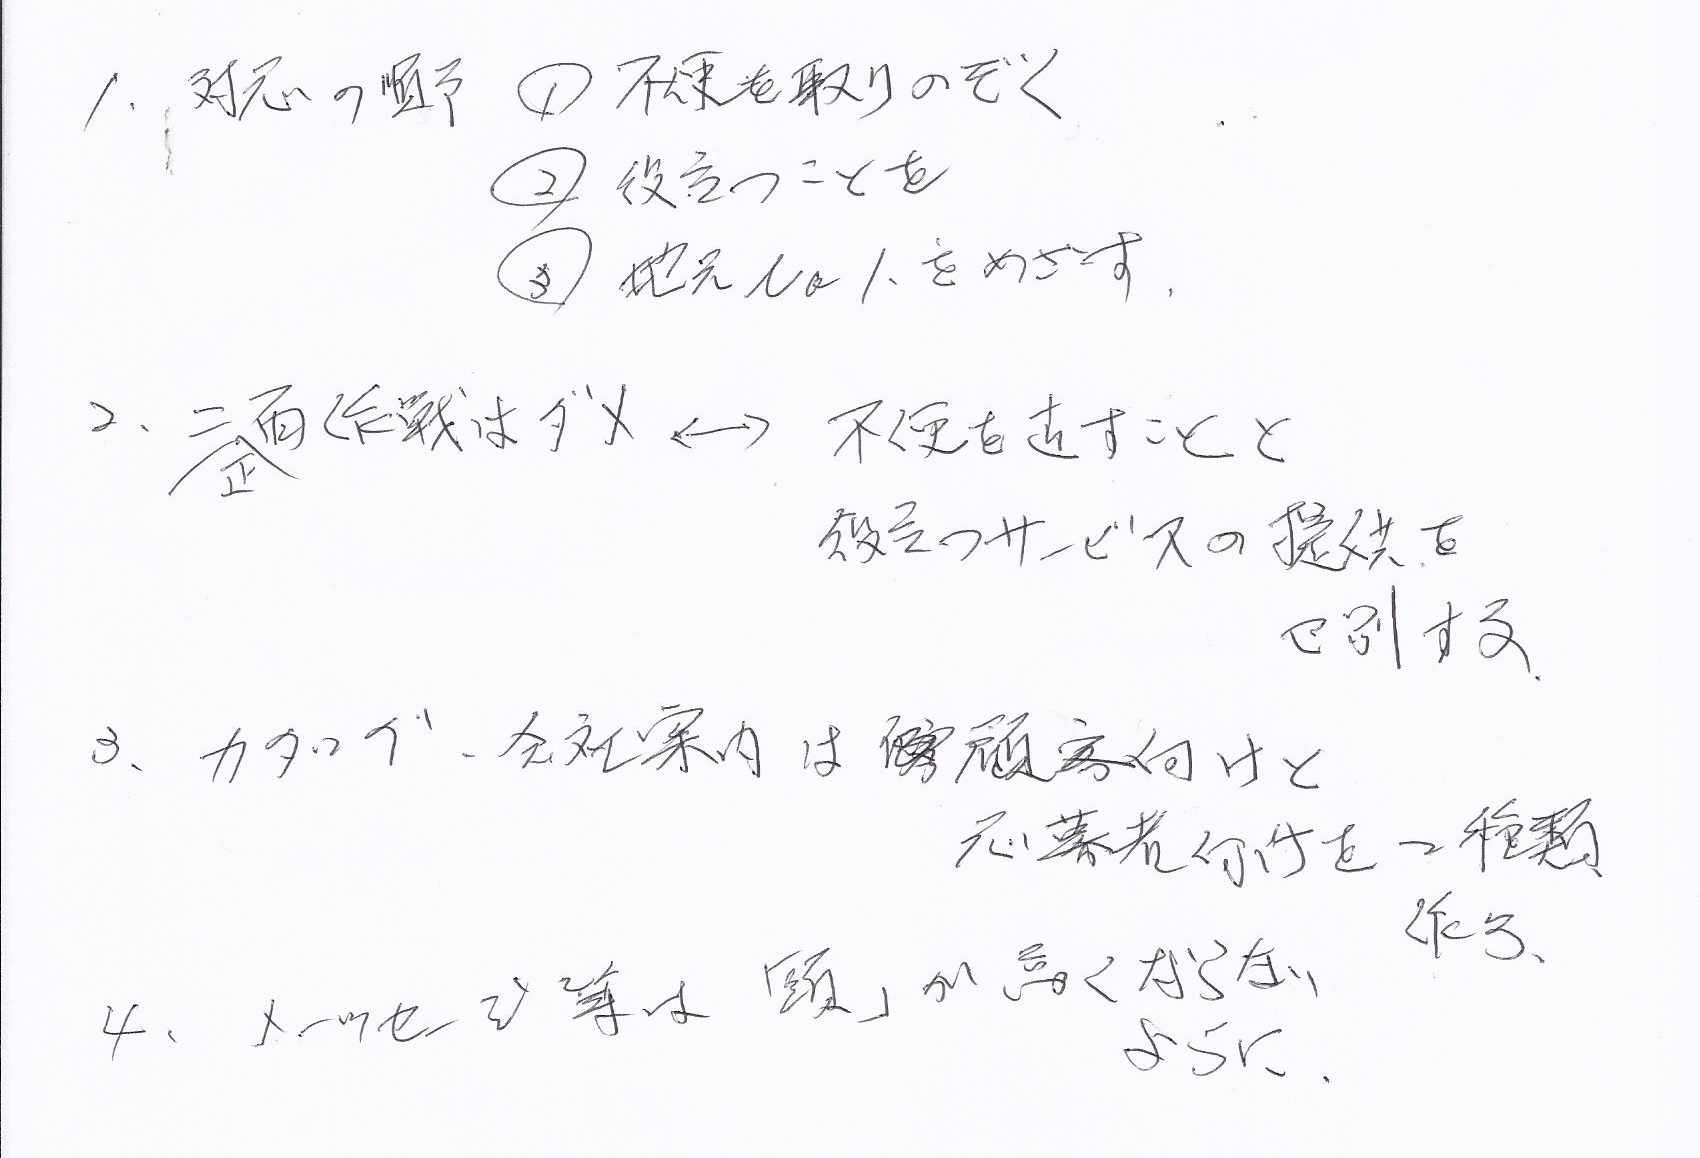 1. 対応の順序 ① 不便を取りのぞく
② 役立つことを
③ 地元No1.をめざす.
2. 二面作戦はダメ ↔ 不便を直すことと
正
役立つサービスの提供を
区別する.
3. カタログ・会社案内は顧客付けと
応募者付けを二種類
作る、
4. メッセージ等は「頭」が高くならない
ように.